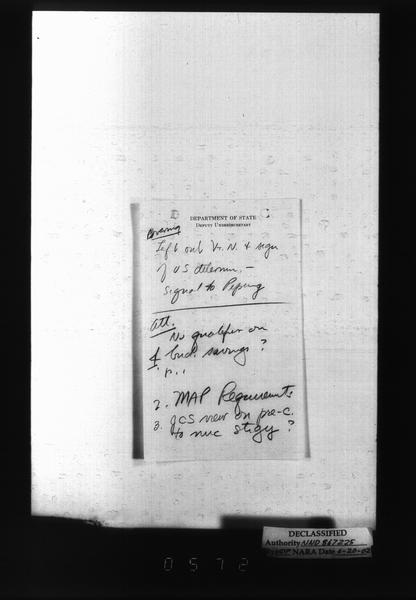 DEPARTMENT OF STATE
DEPUTY UNDERSECRETARY
Covering
Left out V. N. & sign
of US determ. –
signal to Peping
Att.
No qualifier on
bud. savings?
p. 1
2. MAP Requirements
3. JCS view on pre-c.
to nuc stgy?
DECLASSIFIED
Authority NND 867225
NARA Date 6-20-02
0572